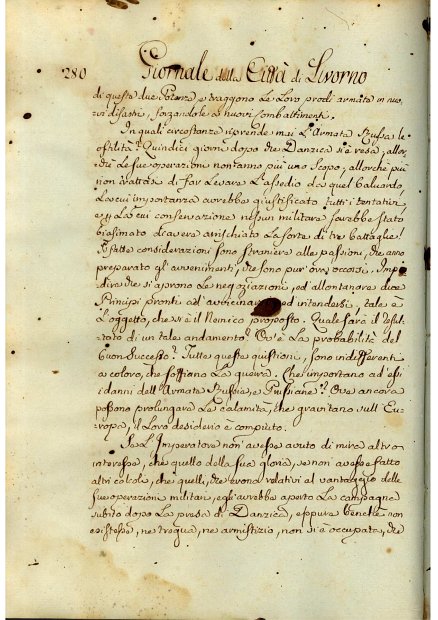 280 Giornale della Città di Livorno
di queste due Potenze, e traggono le loro prodi armate in nuo-
vi disastri, forzandole a nuovi combattimenti.
In quali circostanze riprende mai l'Armata Russa le
ostilità? Quindici giorni dopo che Danzica si è resa, allor-
chè le sue operazioni non anno più uno scopo, allorchè più
non trattasi di far levare l'assedio da quel Baluardo,
la cui importanza avrebbe giustificato tutti i tentativi
e la cui conservazione nessun militare sarebbe stato
biasimato di avere arrischiato la sorte di tre battaglie!
considerazioni sono straniere alle passioni, che anno
preparato gli avvenimenti, che sono pur ora occorsi. Impe-
dire che si aprono le negoziazioni, ed allontanare due
Principi pronti ad avvicinarsi, ed intendersi, tale è
l'oggetto, che si è il Nemico proposto. Quale sarà il resul-
tato di un tale andamento? Ov'è la probabilità del
buon Successo? Tutte queste quistioni, sono indifferenti
a coloro, che soffiano la guerra. Che importano ad essi
i danni dell'Armata Russa, e Prussiana? Ove ancora
possono prolungare la calamità, che gravitano sull'Eu-
ropa, il loro desiderio è compiuto.
Se l'Imperatore non avesse avuto di mira altro
interesse, che quello della sua gloria, se non avesse fatto
altri calcoli, che quelli, che erano relativi al vantaggio delle
sue operazioni militari, egli avrebbe aperto la campagna
subito dopo la presa di Danzica, eppure benchè non
esistesse, ne tregua, ne armistizio, non si è occupata, che